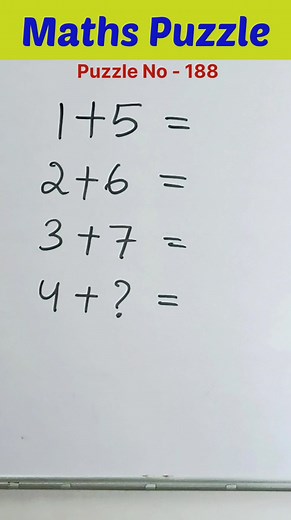 Maths Puzzle
Puzzle No - 188
1+5 =
2+6 =
3+7 =
4+? =